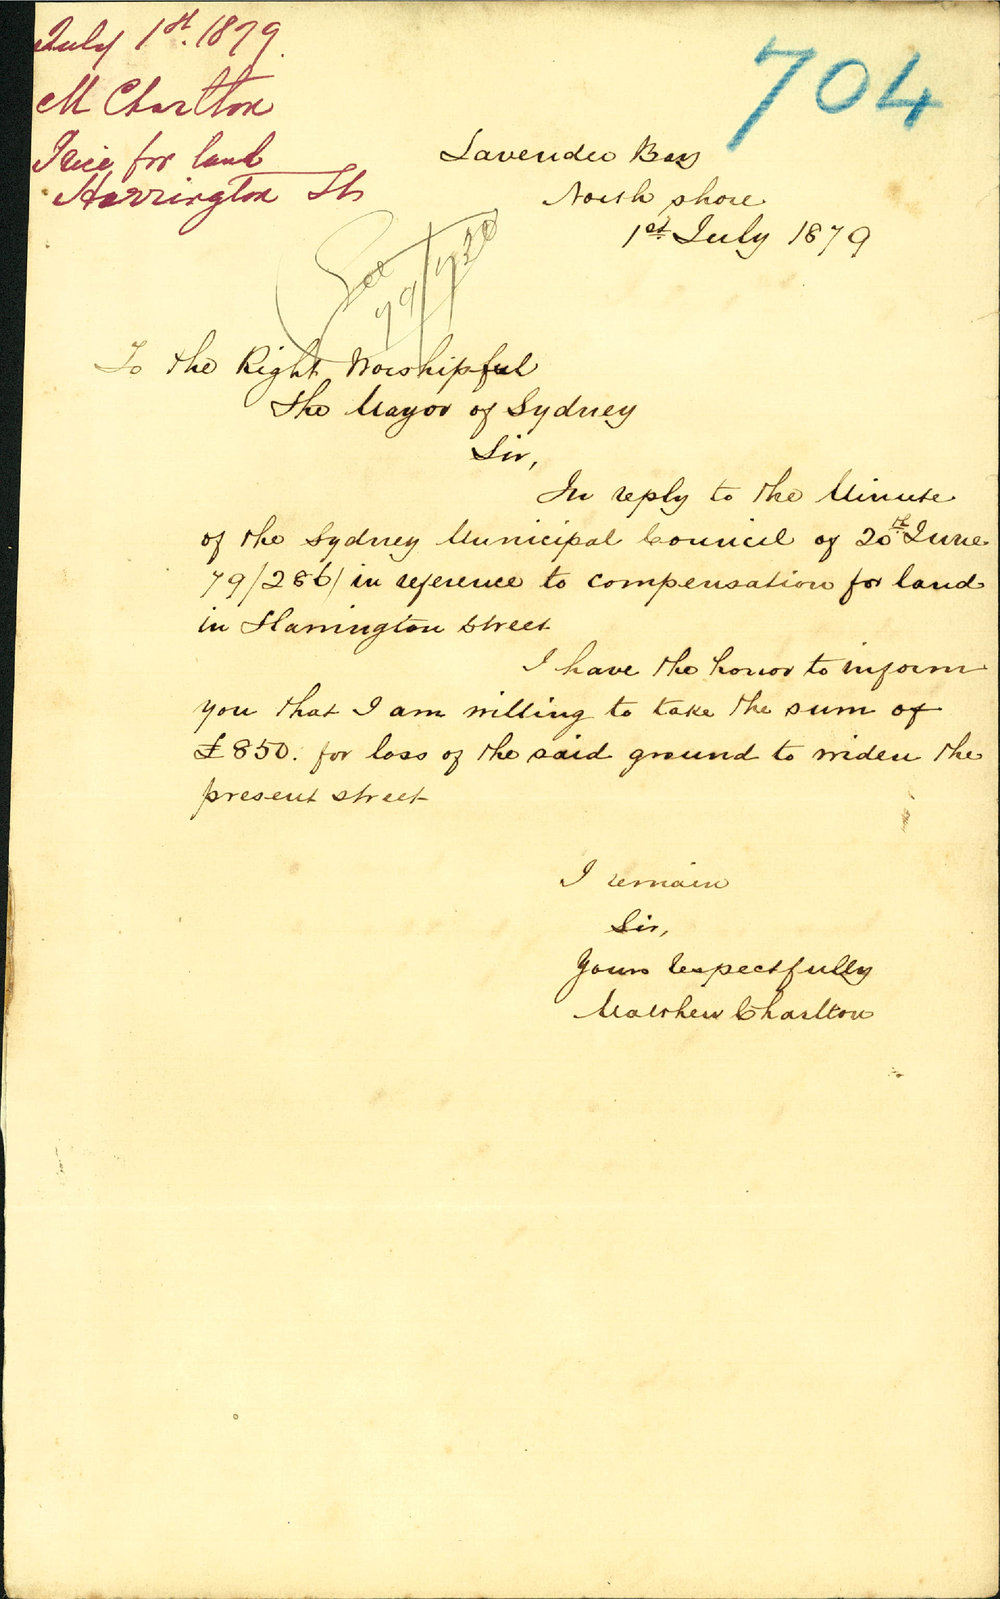 July 1st. 1879.
M Charlton
Price for land
Harrington St
704
Lavender Bay
North shore
1st July 1879
See
79/720
To the Right Worshipful
The Mayor of Sydney
Sir,
In reply to the Minute
of the Sydney Municipal Council of 20th June
79/286/ in reference to compensation for land
in Harrington Street
I have the honor to inform
you that I am willing to take the sum of
£850. for loss of the said ground to widen the
present street
I remain
Sir,
Yours respectfully
Matthew Charlton